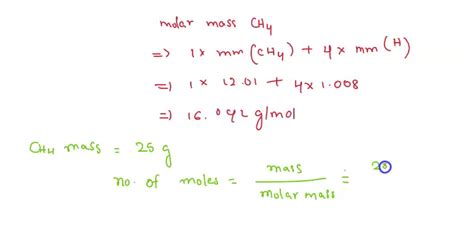 molar mass CH4
=> 1 x mm (CH4) + 4 x mm (H)
=> 1 x 12.01 + 4 x 1.008
=> 16.042 g/mol
CH4 mass = 25 g
no. of moles = mass / molar mass =